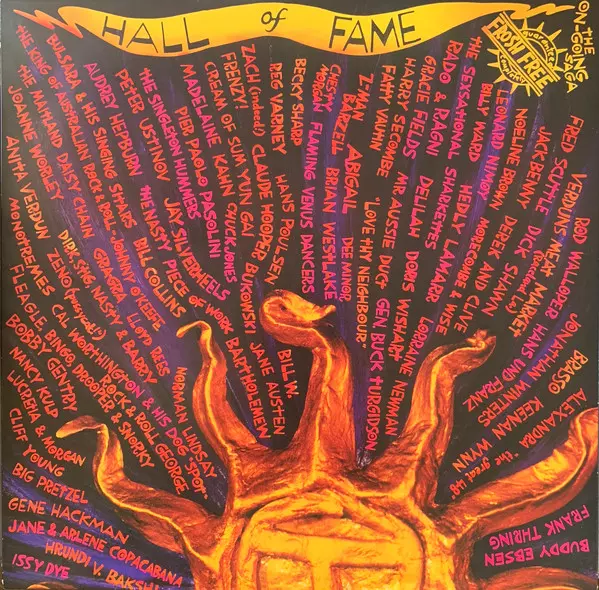 HALL of FAME
THE ON-GOING SAGA
guarantee
FROSH FREE
ISSY DYE
HRUNDI V. BAKSHI
JANE & ARLENE COPACABANA
GENE HACKMAN
BIG PRETZEL
CLIFF YOUNG
LUCRETIA & MORGAN
NANCY KULP
BOBBY GENTRY
FLEAGLE, BINGO, DROOPER & SNORKY
MONOTREMES
CAL WORTHINGTON & HIS DOG "SPOT"
ANITA VERDUN
ZENO
ROCK & ROLL GEORGE
JOANNE WORLEY
DIRK, STIG, NASTY & BARRY
NORMAN LINDSAY
THE MAITLAND DAISY CHAIN
GRAGRA
LLOYD REES
THE KING OF AUSTRALIAN ROCK & ROLL, JOHNNY O'KEEFE
BULSARA & HIS SINGING SHARPS
BILL COLLINS
AUDREY HEPBURN
THE NASTY PIECE OF WORK
BARTHOLEMEW
PETER USTINOV
JAY SILVERHEELS
THE SINGLETON HUMMERS
PIER PAOLO PASOLINI
MADELAINE KAHN
CHUCK JONES
BUKOWSKI
JANE AUSTEN
CREAM OF SUM YUN GAI
FRENZY!
CLAUDE HOOPER
BILL W.
ZACH (indeed!)
HANS POULSEN
REG VARNEY
BECKY SHARP
MORGAN
FLAMING VENUS DANCERS
CHESTY
BRIAN WESTLAKE
BARZELL
DEE MINOR
Z-MAN
ABIGAIL
"LOVE THY NEIGHBOUR"
FATTY VAUTIN
MR AUSSIE DUCT
GEN BUCK TURGIDSON
HARRY SECOMBE
DELILAH
DORIS WISHART
GRACIE FIELDS
SHARKETTES
LORRAINE NEWMAN
RADO & RAGNI
HEDLY LAMARR
THE SEKSATIONAL
MORECOMBE & WISE
BILLY WARD
DEREK AND CLIVE
LEONARD NIMOY
SHAWN
NOELINE BROWN
DICK
JACK BENNY
HANS UND FRANZ
FRED SCUTTLE
VERDUN'S MEAT MARKET
JONATHAN WINTERS
ROD WALLOPER
KEENAN WYNN
BRASSO
"the great UG"
ALEXANDRA
FRANK THRING
BUDDY EBSEN